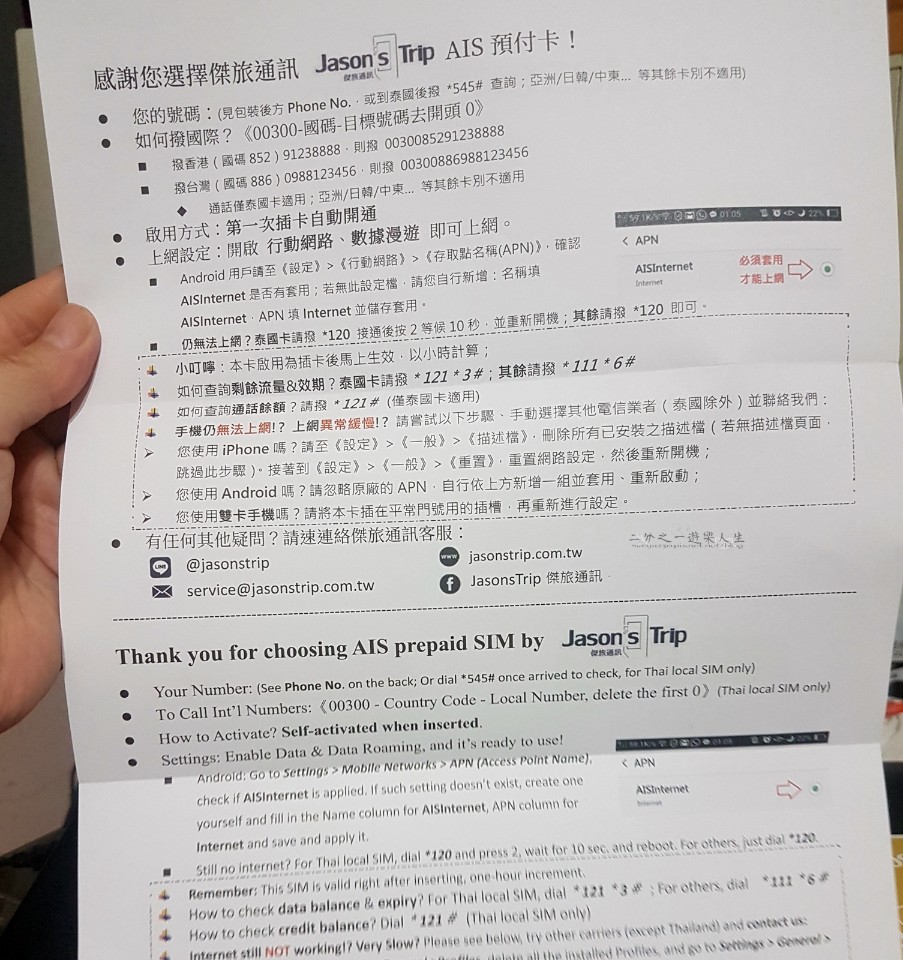 感謝您選擇傑旅通訊 Jason's Trip 傑旅通訊 AIS 預付卡！
● 您的號碼：(見包裝後方 Phone No.，或到泰國後撥 *545# 查詢；亞洲/日韓/中東... 等其餘卡別不適用)
● 如何撥國際？《00300-國碼-目標號碼去開頭 0》
■ 撥香港（國碼 852）91238888，則撥 0030085291238888
■ 撥台灣（國碼 886）0988123456，則撥 00300886988123456
◆ 通話僅泰國卡適用；亞洲/日韓/中東... 等其餘卡別不適用
● 啟用方式：第一次插卡自動開通
● 上網設定：開啟 行動網路、數據漫遊 即可上網。
■ Android 用戶請至《設定》>《行動網路》>《存取點名稱(APN)》，確認
AISInternet 是否有套用；若無此設定檔，請您自行新增：名稱填
AISInternet，APN 填 Internet 並儲存套用。
59.1K/s 01:05 22%
< APN
AISInternet
Internet
必須套用
才能上網
■ 仍無法上網？泰國卡請撥 *120 接通後按 2 等候 10 秒，並重新開機；其餘請撥 *120 即可。
小叮嚀：本卡啟用為插卡後馬上生效，以小時計算；
如何查詢剩餘流量&效期？泰國卡請撥 *121*3#；其餘請撥 *111*6#
如何查詢通話餘額？請撥 *121# (僅泰國卡適用)
手機仍無法上網!? 上網異常緩慢!? 請嘗試以下步驟、手動選擇其他電信業者（泰國除外）並聯絡我們：
➢ 您使用 iPhone 嗎？請至《設定》>《一般》>《描述檔》，刪除所有已安裝之描述檔（若無描述檔頁面，
跳過此步驟）。接著到《設定》>《一般》>《重置》，重置網路設定，然後重新開機；
➢ 您使用 Android 嗎？請忽略原廠的 APN，自行依上方新增一組並套用、重新啟動；
➢ 您使用雙卡手機嗎？請將本卡插在平常門號用的插槽，再重新進行設定。
● 有任何其他疑問？請速連絡傑旅通訊客服：
二分之一遊樂人生
LINE @jasonstrip
www jasonstrip.com.tw
service@jasonstrip.com.tw
f JasonsTrip 傑旅通訊
Thank you for choosing AIS prepaid SIM by Jason's Trip 傑旅通訊
● Your Number: (See Phone No. on the back; Or dial *545# once arrived to check, for Thai local SIM only)
● To Call Int'l Numbers:《00300 - Country Code - Local Number, delete the first 0》(Thai local SIM only)
● How to Activate? Self-activated when inserted.
● Settings: Enable Data & Data Roaming, and it's ready to use!
■ Android: Go to Settings > Mobile Networks > APN (Access Point Name),
check if AISInternet is applied. If such setting doesn't exist, create one
yourself and fill in the Name column for AISInternet, APN column for
Internet and save and apply it.
< APN
AISInternet
Internet
■ Still no internet? For Thai local SIM, dial *120 and press 2, wait for 10 sec. and reboot. For others, just dial *120.
Remember: This SIM is valid right after inserting, one-hour increment.
How to check data balance & expiry? For Thai local SIM, dial *121 *3# ; For others, dial *111 *6#
How to check credit balance? Dial *121# (Thai local SIM only)
Internet still NOT working!? Very Slow? Please see below, try other carriers (except Thailand) and contact us:
Profiles, delete all the installed Profiles, and go to Settings > General >